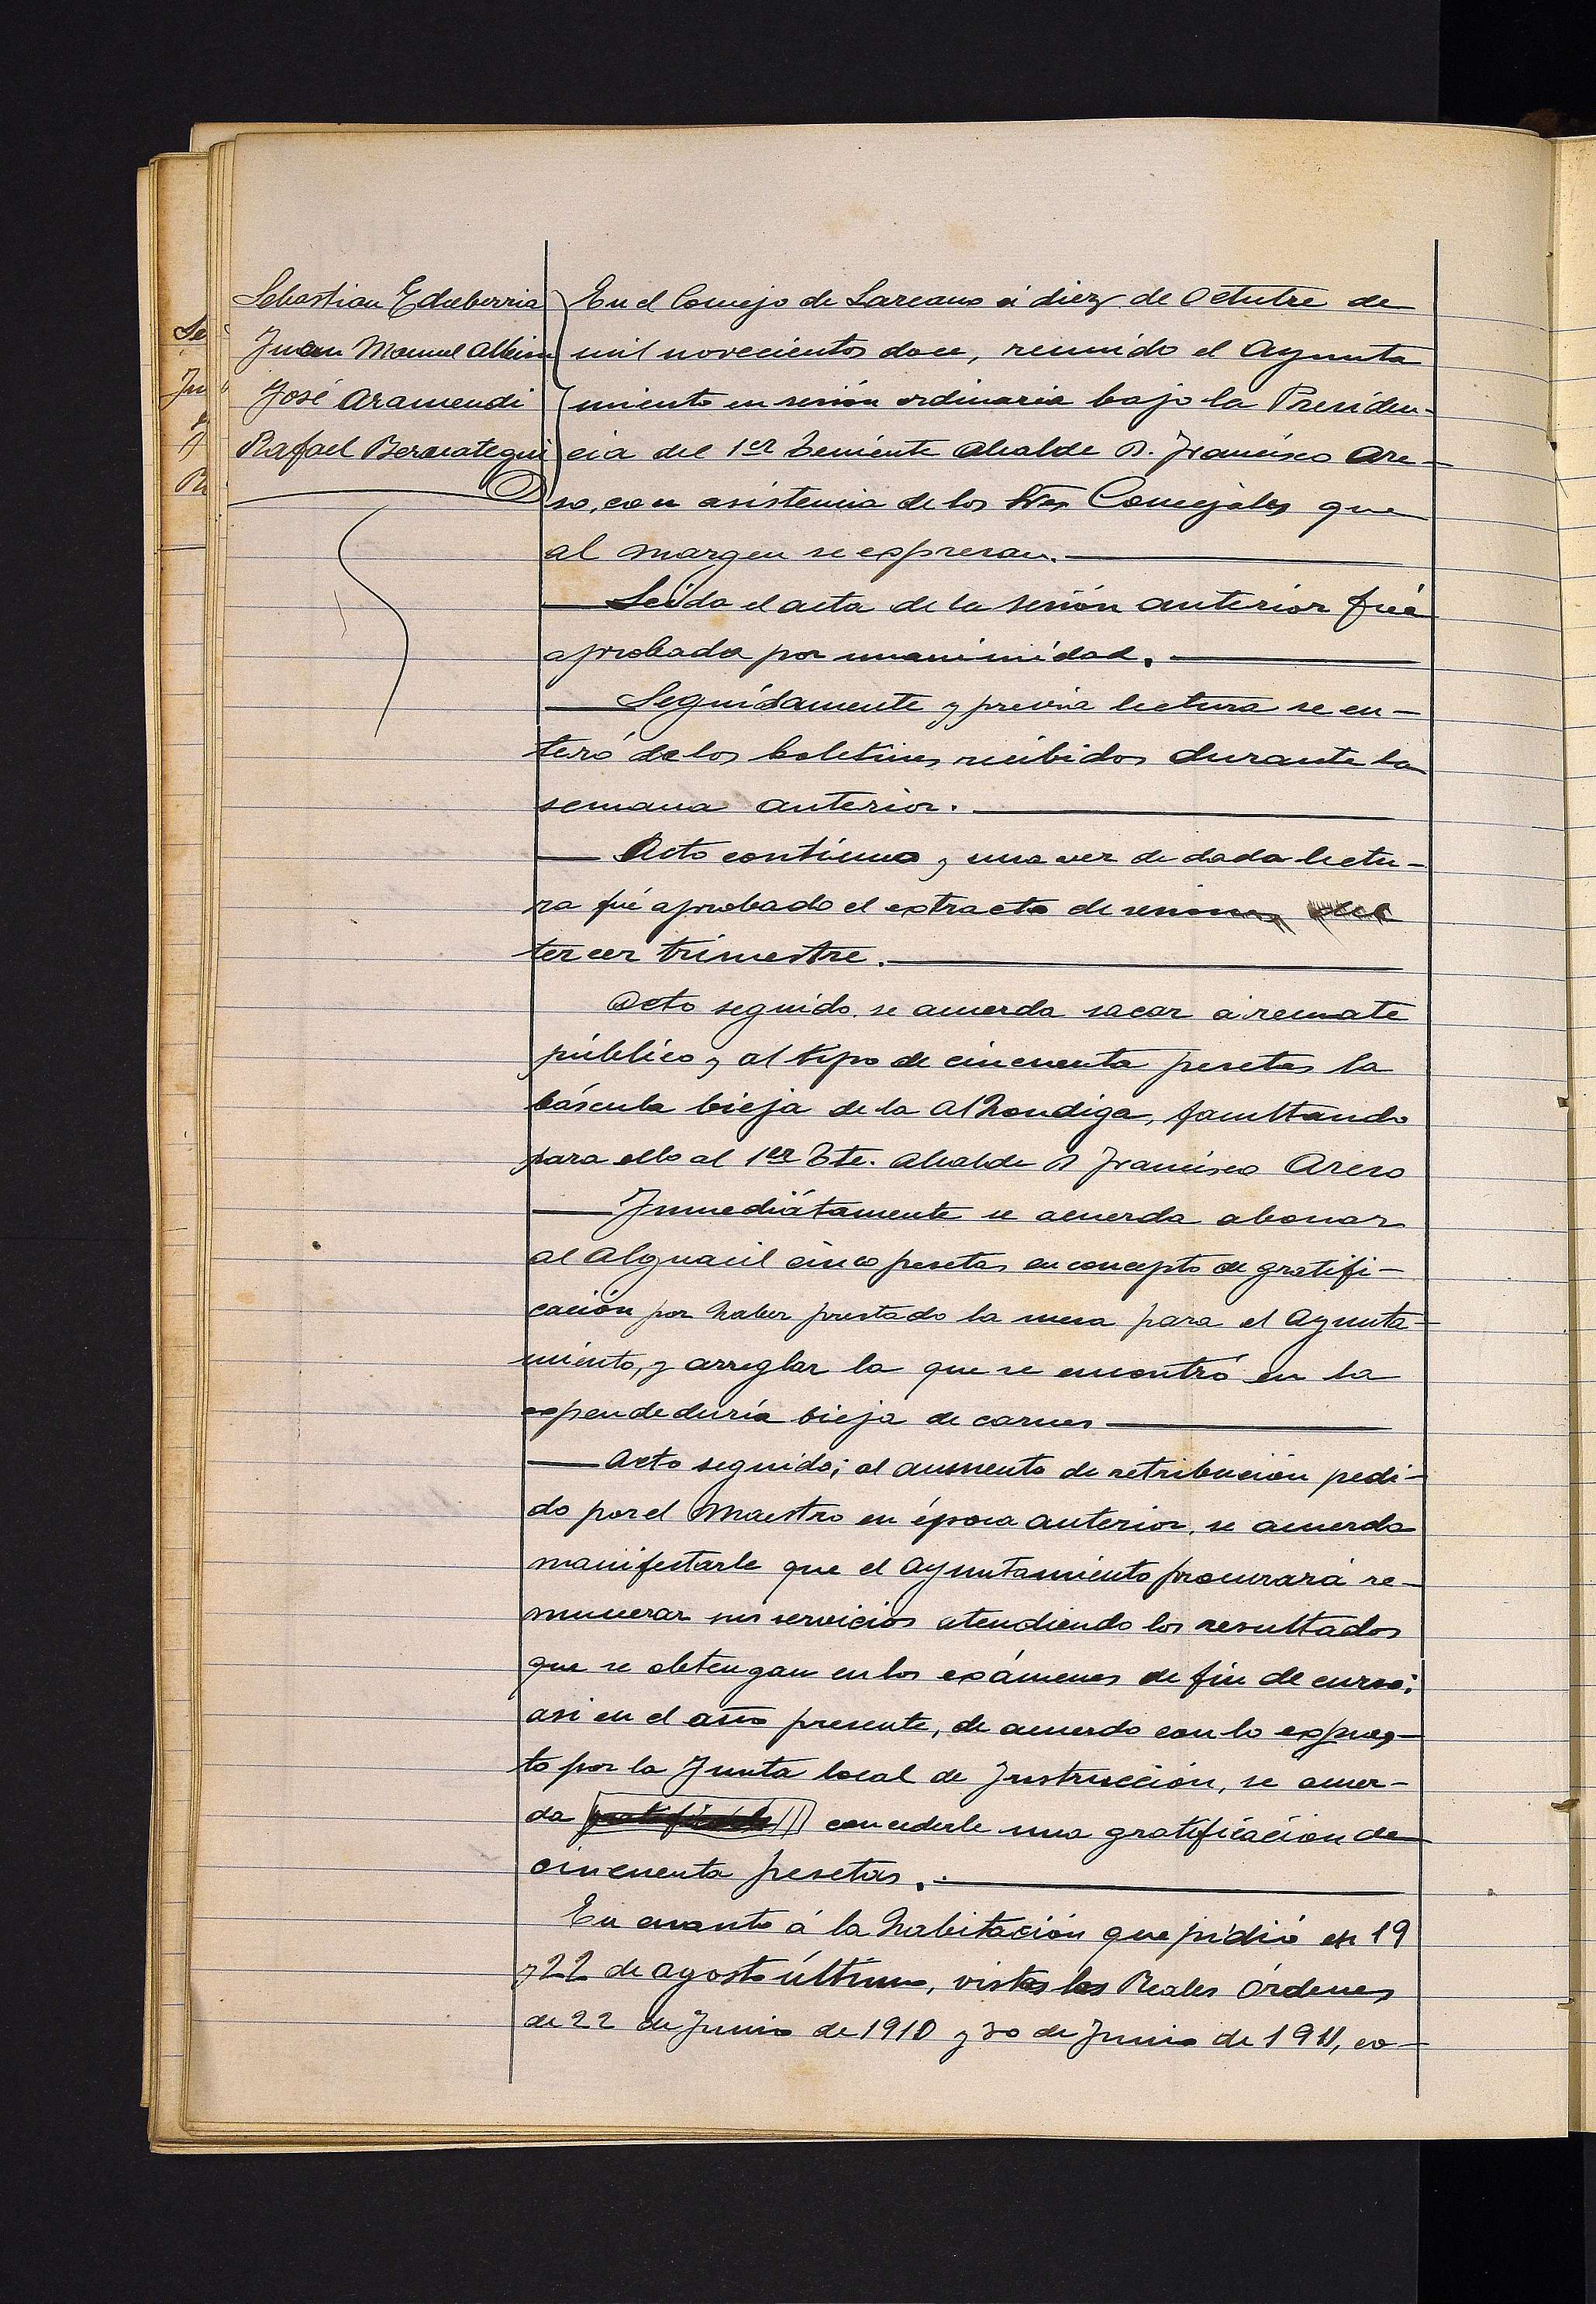 Sebastian Echeberria
Juan Manuel Albisu
José Aramendi
Rafael Beracategui
En el Concejo de Lazcano á diez de Octubre de
mil novecientos doce, reunido el Ayunta
miento en sesión ordinaria bajo la Presiden-
cia del 1er Teniente Alcalde D. Francisco Are-
so, con asistencia de los Sres Concejales que
al margen se expresan.
Leida el acta de la sesión anterior fué
aprobada por unanimidad.
Seguidamente y previa lectura se en-
teró de los boletines recibidos durante la
semana anterior.
Acto continuo y una vez de dada lectu-
ra fué aprobado el extracto de sesiones del
tercer trimestre.
Acto seguido se acuerda sacar á remate
público y al tipo de cincuenta pesetas la
báscula bieja de la Alhondiga, facultando
para ello al 1er Tte. Alcalde D Francisco Areso
Inmediátamente se acuerda abonar
al Alguacil cinco pesetas en concepto de gratifi-
cación por haber prestado la mesa para el Ayunta-
miento, y arreglar la que se encontró en la
expendeduría bieja de carnes
Acto seguido; al aumento de retribución pedi-
do por el Maestro en época anterior, se acuerda
manifestarle que el Ayuntamiento procurará re-
munerar sus servicios atendiendo los resultados
que se obtengan en los exámenes de fin de curso;
asi en el año presente, de acuerdo con lo expues-
to por la Junta local de Instrucción, se acuer-
da concederle una gratificación de
cincuenta pesetas.
En cuanto á la habitación que pidió en 19
y 22 de agosto último, vistas las Reales Órdenes
de 22 de Junio de 1910 y 30 de Junio de 1911, co-